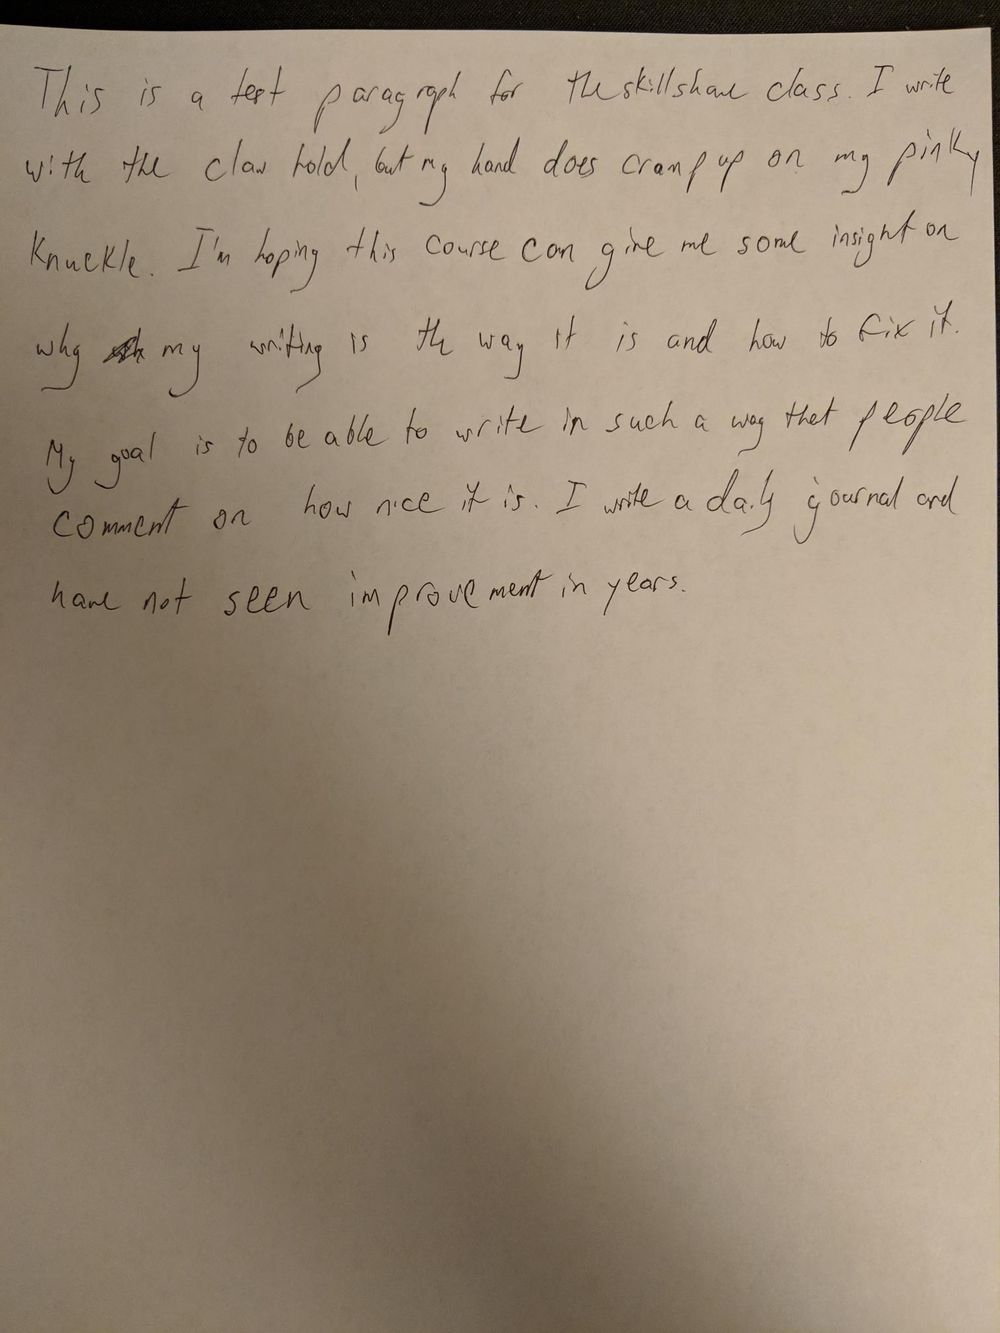 This is a test paragraph for the skillshare class. I write
with the claw hold, but my hand does cramp up on my pinky
knuckle. I'm hoping this course can give me some insight on
why my writing is the way it is and how to fix it.
My goal is to be able to write in such a way that people
comment on how nice it is. I write a daily journal and
have not seen improvement in years.